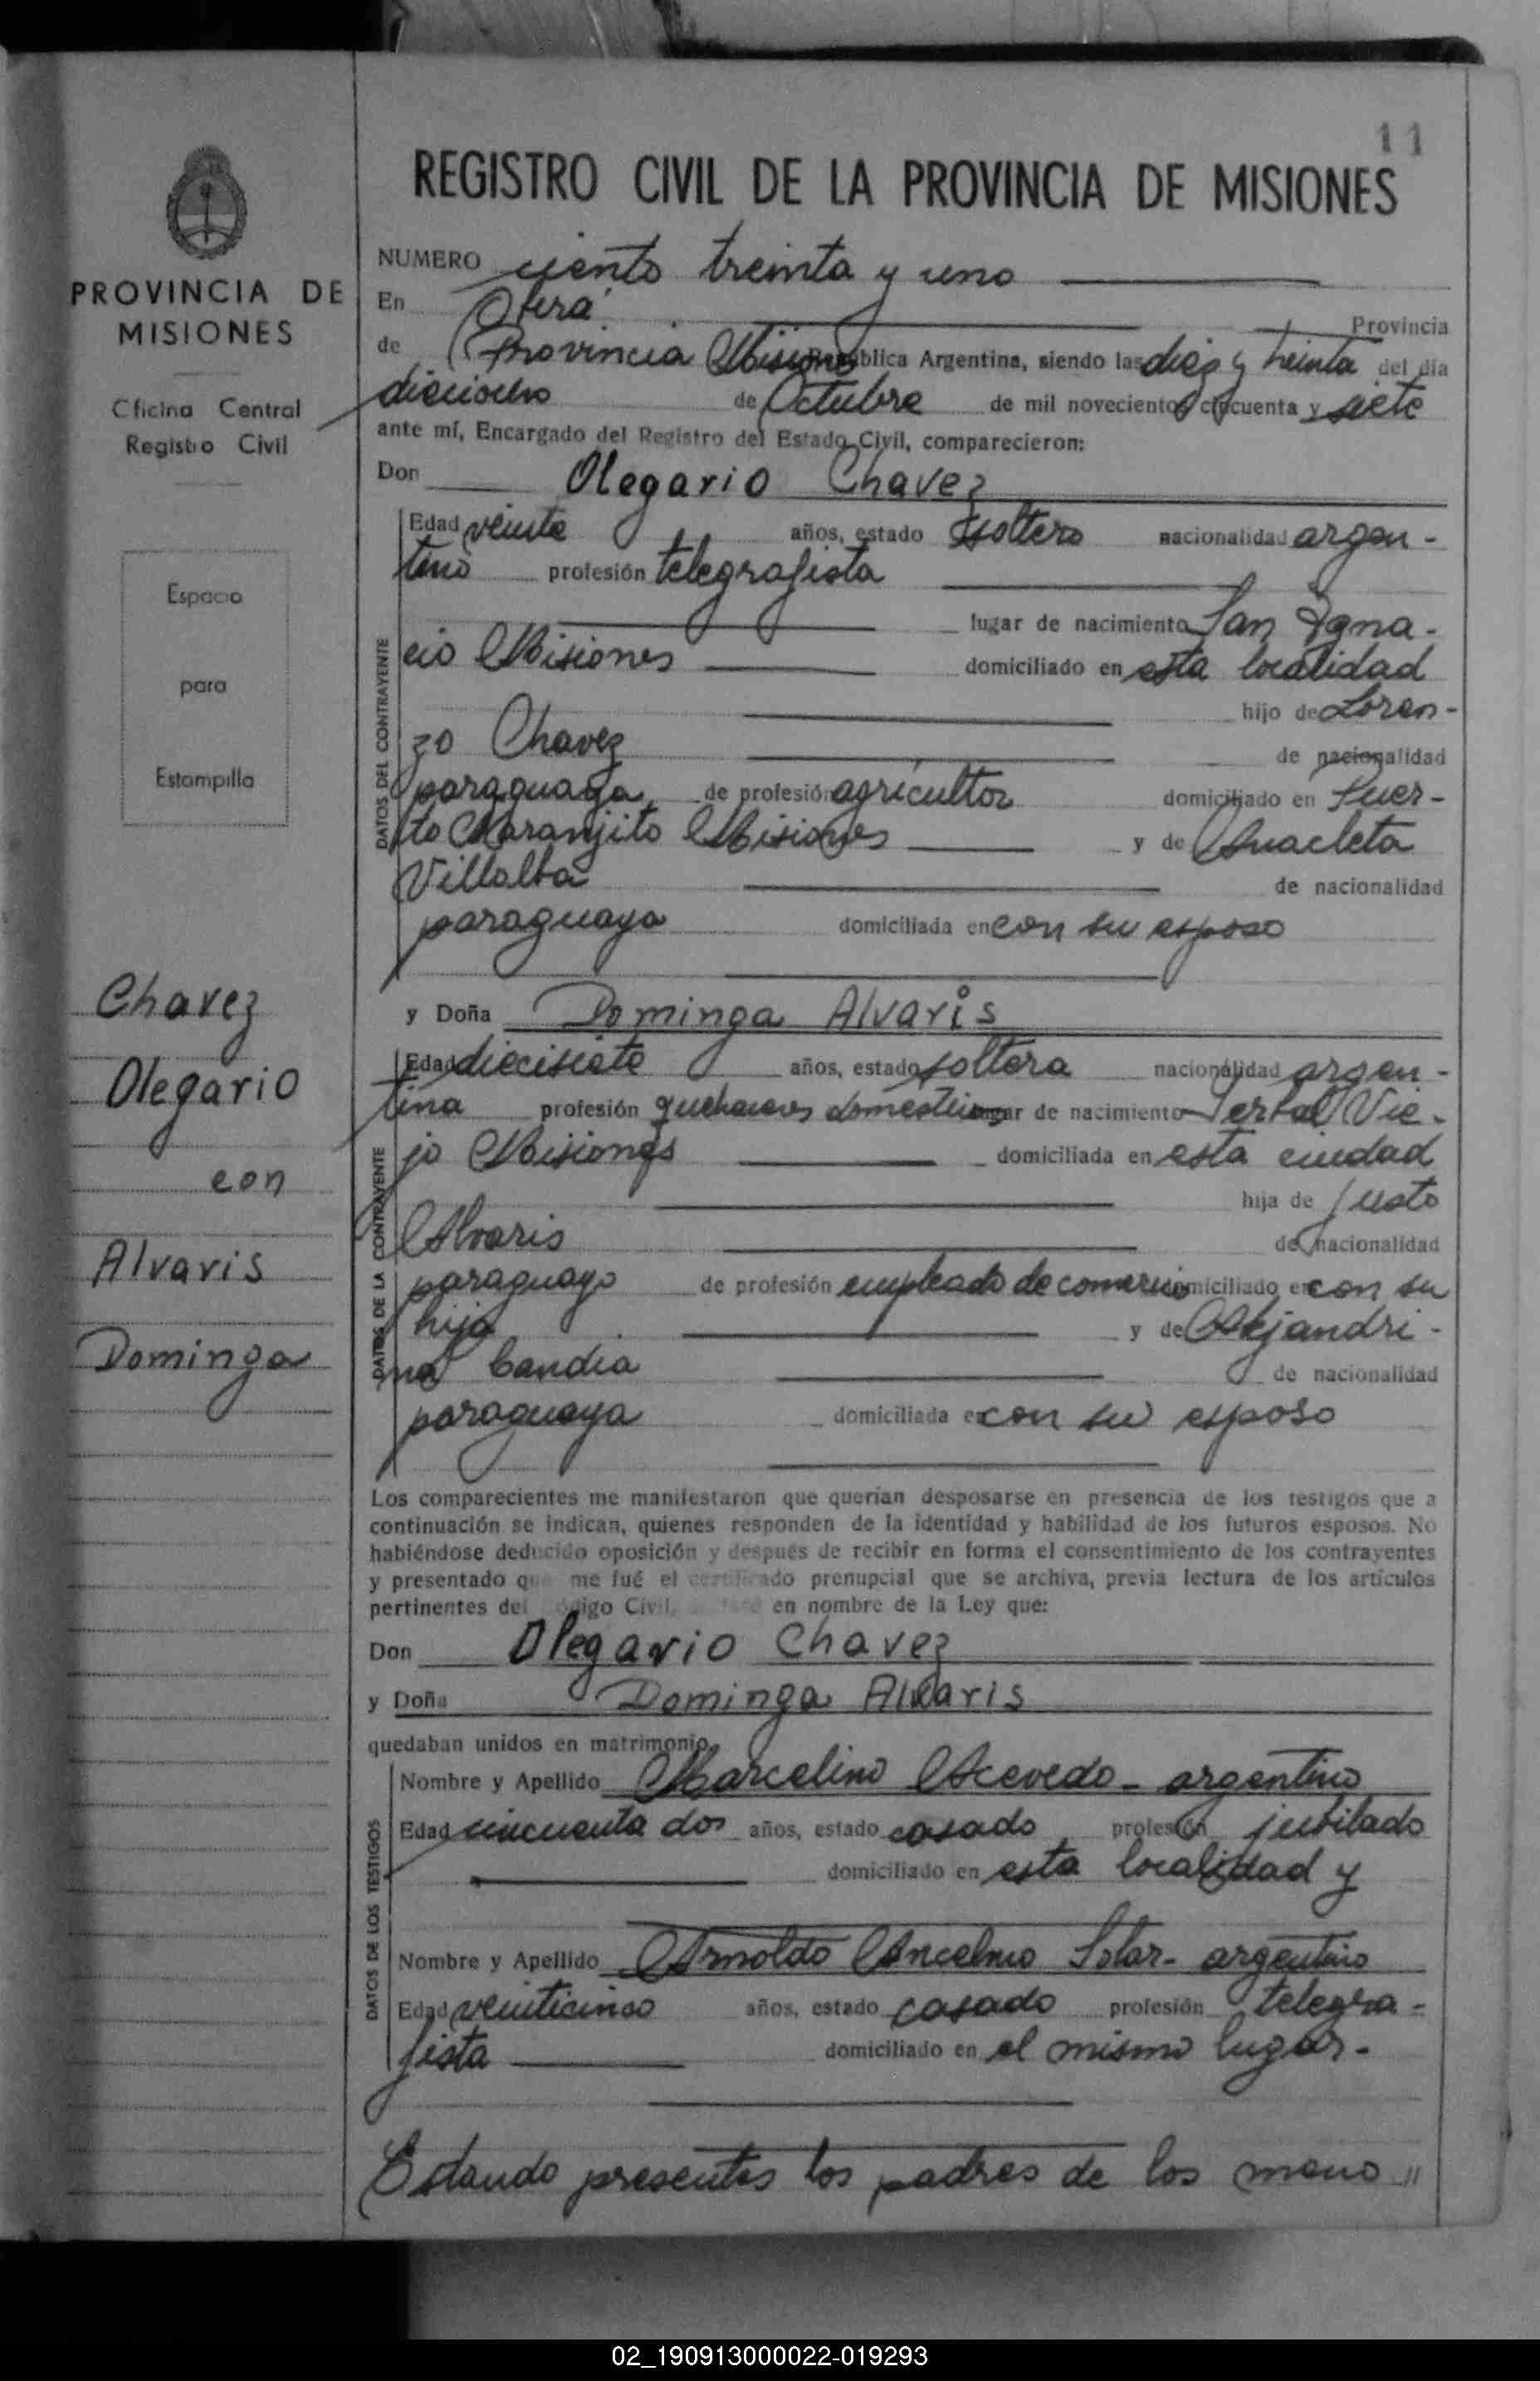 11
REGISTRO CIVIL DE LA PROVINCIA DE MISIONES
PROVINCIA DE
MISIONES
Oficina Central
Registro Civil
Espacio
para
Estampilla
Chavez
Olegario
con
Alvaris
Dominga
NUMERO ciento treinta y uno
En Oberá Provincia
de Provincia Misiones República Argentina, siendo las diez y treinta del día
dieciocho de Octubre de mil novecientos cincuenta y siete
ante mí, Encargado del Registro del Estado Civil, comparecieron:
Don Olegario Chavez
DATOS DEL CONTRAYENTE
Edad veinte años, estado soltero nacionalidad argen-
tino profesión telegrafista
lugar de nacimiento San Igna-
cio Misiones domiciliado en esta localidad
hijo de Loren-
zo Chavez de nacionalidad
paraguaya de profesión agricultor domiciliado en Puer-
to Naranjito Misiones y de Anacleta
Villalba de nacionalidad
paraguaya domiciliada en con su esposo
y Doña Dominga Alvaris
DATOS DE LA CONTRAYENTE
Edad diecisiete años, estado soltera nacionalidad argen-
tina profesión quehaceres domesticos lugar de nacimiento Yerbal Vie-
jo Misiones domiciliada en esta ciudad
hija de Justo
Alvaris de nacionalidad
paraguayo de profesión empleado de comercio domiciliado en con su
hija y de Alejandri-
na Candia de nacionalidad
paraguaya domiciliada en con su esposo
Los comparecientes me manifestaron que querían desposarse en presencia de los testigos que a
continuación se indican, quienes responden de la identidad y habilidad de los futuros esposos. No
habiéndose deducido oposición y después de recibir en forma el consentimiento de los contrayentes
y presentado que me fué el certificado prenupcial que se archiva, previa lectura de los artículos
pertinentes del Código Civil, en nombre de la Ley que:
Don Olegario Chavez
y Doña Dominga Alvaris
quedaban unidos en matrimonio.
DATOS DE LOS TESTIGOS
Nombre y Apellido Marcelino Acevedo - argentino
Edad cincuenta dos años, estado casado profesión jubilado
domiciliado en esta localidad y
Nombre y Apellido Arnoldo Ancelmo Sotar - argentino
Edad veinticinco años, estado casado profesión telegra-
fista domiciliado en el mismo lugar.-
Estando presentes los padres de los meno "
02_190913000022-019293